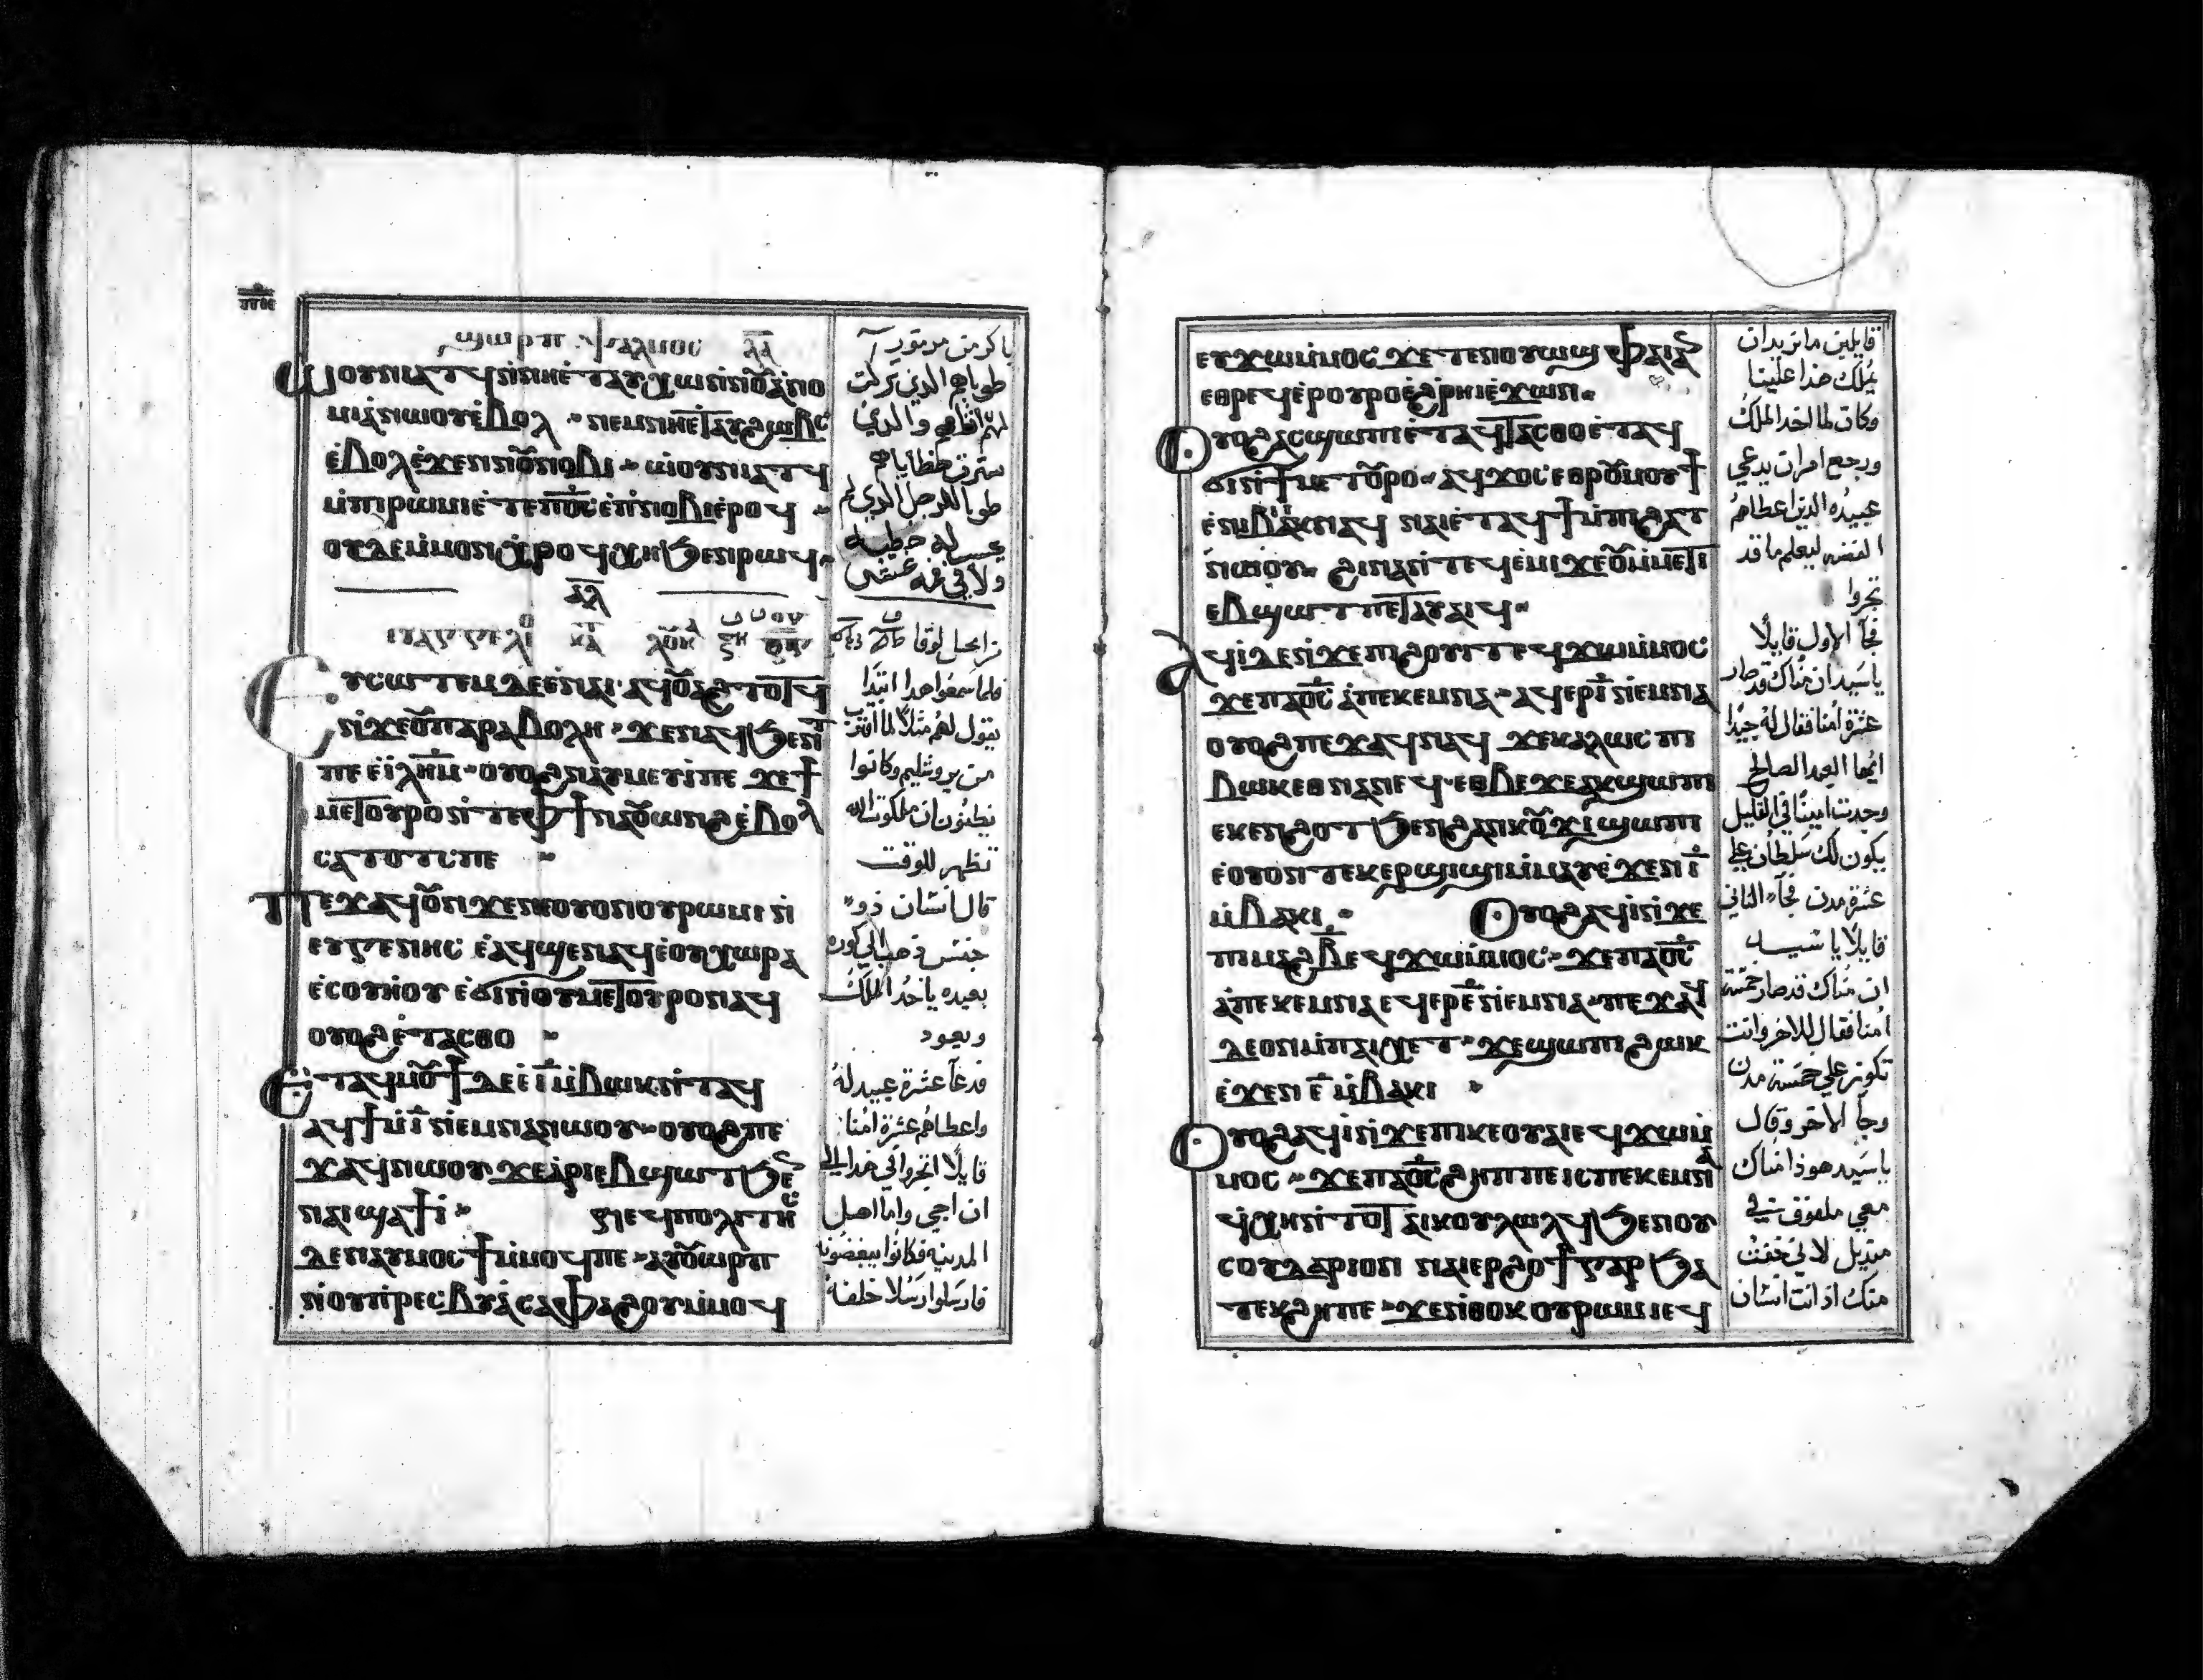 ϣⲱⲣⲡ ⲯⲁⲗⲙⲟⲥ ⲗ̅ⲁ̅
ⲱⲟⲩⲛⲓⲁⲧⲟⲩ ⲛⲛⲏⲉⲧⲁⲩⲭⲱ ⲛⲛⲟⲩⲁⲛⲟ
ⲙⲓⲁ ⲛⲱⲟⲩ ⲉⲃⲟⲗ ⲛⲉⲙ ⲛⲏⲉⲧⲁⲩϩⲱⲃⲥ
ⲉⲃⲟⲗ ⲉϫⲉⲛ ⲛⲟⲩⲛⲟⲃⲓ ⲱⲟⲩⲛⲓⲁⲧϥ
ⲙⲡⲓⲣⲱⲙⲓ ⲉⲧⲉ ⲡⲟ̅ⲥ̅ ⲉⲡ ⲛⲟⲃⲓ ⲉⲣⲟϥ
ⲟⲩⲇⲉ ⲙⲙⲟⲛ ⲭⲣⲟϥ ⲭⲏ ϧⲉⲛ ⲣⲱϥ
ⲉⲩⲥⲱⲧⲉⲙ ⲇⲉ ⲉⲛⲁⲓ ⲁϥⲟⲩⲁϩⲧⲟⲧϥ
ⲛϫⲉ ⲟⲩⲡⲁⲣⲁⲃⲟⲗⲏ ϫⲉ ⲛⲁϥϧⲉⲛⲧ
ⲡⲉ ⲉⲓ̅ⲗ̅ⲏ̅ⲙ̅ ⲟⲩⲟϩ ⲛⲁⲩⲙⲉⲩⲓ ⲡⲉ ϫⲉ ϯ
ⲙⲉⲧⲟⲩⲣⲟ ⲛⲧⲉ ⲫϯ ⲛⲁⲟⲩⲱⲛϩ ⲉⲃⲟⲗ
ⲥⲁⲧⲟⲧⲥ ⲡⲉ
ⲡⲉϫⲁϥ ⲟⲩⲛ ϫⲉ ⲛⲉ ⲟⲩⲟⲛ ⲟⲩⲣⲱⲙⲓ ⲛ
ⲉⲩⲅⲉⲛⲏⲥ ⲉⲁϥϣⲉⲛⲁϥ ⲉⲟⲩⲭⲱⲣⲁ
ⲉⲥⲟⲩⲏⲟⲩ ⲉϭⲓ ⲛⲟⲩⲙⲉⲧⲟⲩⲣⲟ ⲛⲁϥ
ⲟⲩⲟϩ ⲉⲧⲁⲥⲑⲟ
ⲉⲧⲁϥⲙⲟⲩϯ ⲇⲉ ⲉⲓ̅ ⲙⲃⲱⲕ ⲛⲧⲁϥ
ⲁϥϯ ⲙⲓ̅ ⲛⲉⲙⲛⲁ ⲛⲱⲟⲩ ⲟⲩⲟϩ ⲡⲉ
ϫⲁϥ ⲛⲱⲟⲩ ϫⲉ ⲁⲣⲓⲉⲃϣⲱⲧ ϧⲉⲛ
ⲛⲁⲓ ϣⲁϯⲓ ⲛⲉϥⲡⲟⲗⲓⲧⲏⲥ
ⲇⲉ ⲛⲁⲩⲙⲟⲥϯ ⲙⲙⲟϥ ⲡⲉ ⲁⲩⲟⲩⲱⲣⲡ
ⲛⲟⲩⲡⲣⲉⲥⲃⲩⲁ ⲥⲁⲫⲁϩⲟⲩ ⲙⲙⲟϥ
باكر من مزمور
طوباهم الذين تركت
لهم اثامهم والذين
سترت خطاياهم
طوبا للرجل الذي لم
يحسب له خطيه
ولا في فمه غش
من انجيل لوقا
فلما سمعوا هذا ابتدا
يقول لهم مثلا لما اقترب
من يروشليم وكانوا
يظنون ان ملكوت الله
تظهر للوقت
قال انسان ذو
جنس ذهب الي كوره
بعيده ياخد الملك
ويعود
فدعا عشرة عبيد له
واعطاهم عشرة امنا
قايلا اتجروا في هذا الي
ان اجي واما اهل
المدينه فكانوا يبغضونه
فارسلوا رسلا خلفه
ⲉⲩϫⲱ ⲙⲙⲟⲥ ϫⲉ ⲧⲉⲛⲟⲩⲱϣ ⲫⲁⲓ ⲁⲛ
ⲉⲑⲣⲉϥⲉⲣⲟⲩⲣⲟ ⲉϩⲣⲏⲓ ⲉϫⲱⲛ
ⲟⲩⲟϩ ⲁⲥϣⲱⲡⲓ ⲉⲧⲁϥⲧⲁⲥⲑⲟ ⲉⲧⲁϥ
ϭⲓ ⲛϯⲙⲉⲧⲟⲩⲣⲟ ⲁϥϫⲟⲥ ⲉⲑⲣⲟⲩⲙⲟⲩϯ
ⲉⲛⲉⲃⲓⲁⲓⲕ ⲛⲁϥ ⲛⲁⲓ ⲉⲧⲁϥϯ ⲙⲡⲓϩⲁⲧ
ⲛⲱⲟⲩ ϩⲓⲛⲁ ⲛⲧⲉϥⲉⲙⲓ ϫⲉ ⲟⲩ ⲙⲙⲉⲧⲓ
ⲉⲃϣⲱⲧ ⲡⲉⲧⲁⲩⲁⲓϥ
ⲁϥⲓ ⲇⲉ ⲛϫⲉ ⲡⲓϩⲟⲩⲓⲧ ⲉϥϫⲱ ⲙⲙⲟⲥ
ϫⲉ ⲡⲁⲟ̅ⲥ̅ ⲁⲡⲉⲕⲉⲙⲛⲁ ⲁϥⲉⲣⲓ̅ ⲛⲉⲙⲛⲁ
ⲟⲩⲟϩ ⲡⲉϫⲁϥ ⲛⲁϥ ϫⲉ ⲕⲁⲗⲱⲥ ⲡⲓ
ⲃⲱⲕ ⲉⲑⲛⲁⲛⲉϥ ⲉⲑⲃⲉ ϫⲉ ⲁⲕϣⲱⲡⲓ
ⲉⲕⲉⲛϩⲟⲧ ϧⲉⲛ ϩⲁⲛⲕⲟⲩϫⲓ ϣⲱⲡⲓ
ⲉⲟⲩⲟⲛⲧⲉⲕ ⲉⲣϣⲓϣⲓ ⲙⲙⲁⲩ ⲉϫⲉⲛ ⲓ̅
ⲙⲃⲁⲕⲓ ⲟⲩⲟϩ ⲁϥⲓ ⲛϫⲉ
ⲡⲓⲙⲁϩⲃ̅ ⲉϥϫⲱ ⲙⲙⲟⲥ ϫⲉ ⲡⲁⲟ̅ⲥ̅
ⲁⲡⲉⲕⲉⲙⲛⲁ ⲉϥⲉⲣⲉ̅ ⲛⲉⲙⲛⲁ ⲡⲉϫⲁϥ
ⲇⲉ ⲟⲛ ⲙⲡⲁⲓⲭⲉⲧ ϫⲉ ϣⲱⲡⲓ ϩⲱⲕ
ⲉϫⲉⲛ ⲉ̅ ⲙⲃⲁⲕⲓ
ⲟⲩⲟϩ ⲁϥⲓ ⲛϫⲉ ⲡⲓⲕⲉⲟⲩⲁⲓ ⲉϥϫⲱ ⲙ
ⲙⲟⲥ ϫⲉ ⲡⲁⲟ̅ⲥ̅ ϩⲏⲡⲡⲉ ⲓⲥ ⲡⲉⲕⲉⲙⲛⲁ
ϥⲭⲏ ⲛⲧⲟⲧ ⲁⲓⲕⲟⲩⲗⲱⲗϥ ϧⲉⲛ ⲟⲩ
ⲥⲟⲩⲇⲁⲣⲓⲟⲛ ⲛⲁⲓⲉⲣϩⲟϯ ⲅⲁⲣ ϧⲁ
ⲧⲉⲕϩⲏ ⲡⲉ ϫⲉ ⲛⲑⲟⲕ ⲟⲩⲣⲱⲙⲓ ⲉϥ
قايلين ما نريد ان
يملك هذا علينا
وكان لما اخد الملك
ورجع امر ان يدعي
عبيده الذين اعطاهم
الفضه ليعلم ما قد
تجروا
فجا الاول قايلا
ياسيد ان مناك قد صار
عشرة امنا فقال له جيدا
ايها العبد الصالح
وجدت امينا في القليل
يكون لك سلطان علي
عشرة مدن فجا الثاني
قايلا يا سيد
ان مناك قد صار خمسة
امنا فقال للاخر وانت
تكون علي خمسة مدن
وجا الاخر وقال
ياسيد هوذا مناك
معي ملفوف في
منديل لاني خفت
منك اذ انت انسان